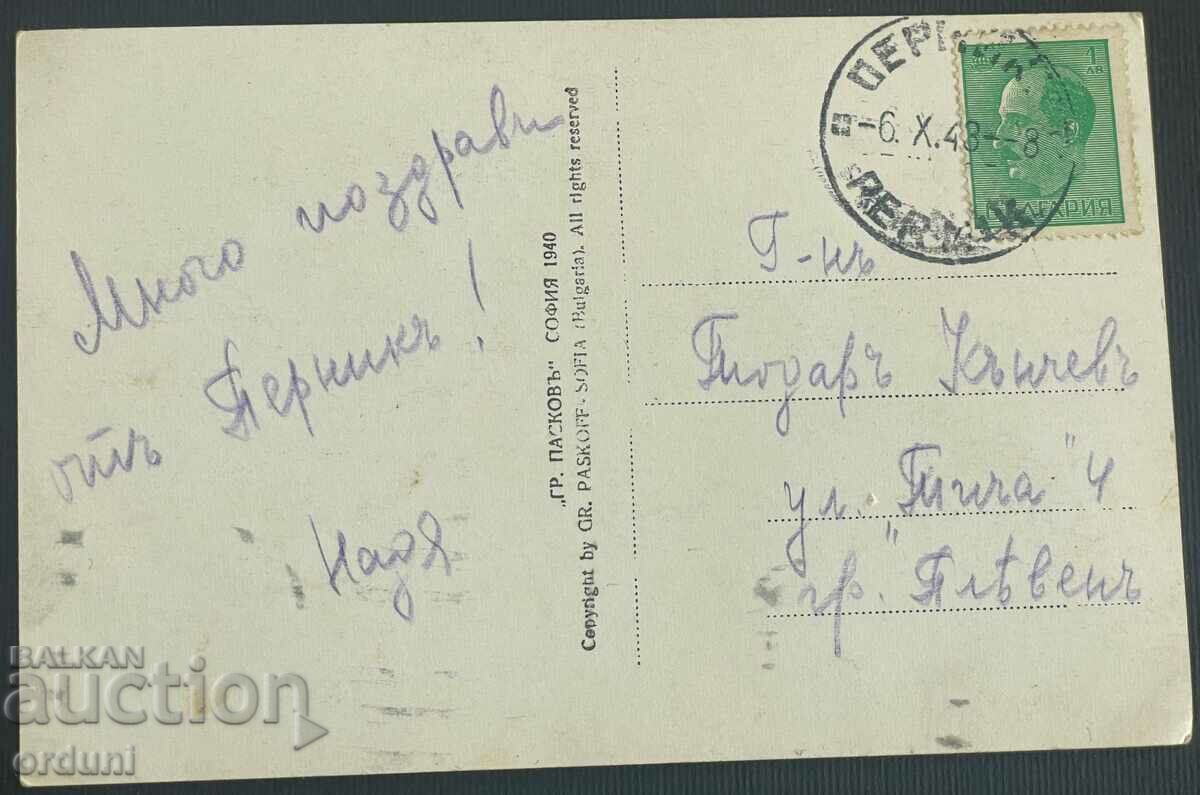 Много поздрави
отъ Перникъ!
Надя
„ГР. ПАСКОВЪ" СОФИЯ 1940
Copyright by GR. PASKOFF - SOFIA (Bulgaria). All rights reserved
1
ЛВ.
БЪЛГАРИЯ
-6. X. 43 - 8
Г-нъ
Тодаръ Кънчевъ
ул. „Тича" 4
гр. Плѣвенъ
BALKAN
auction
orduni